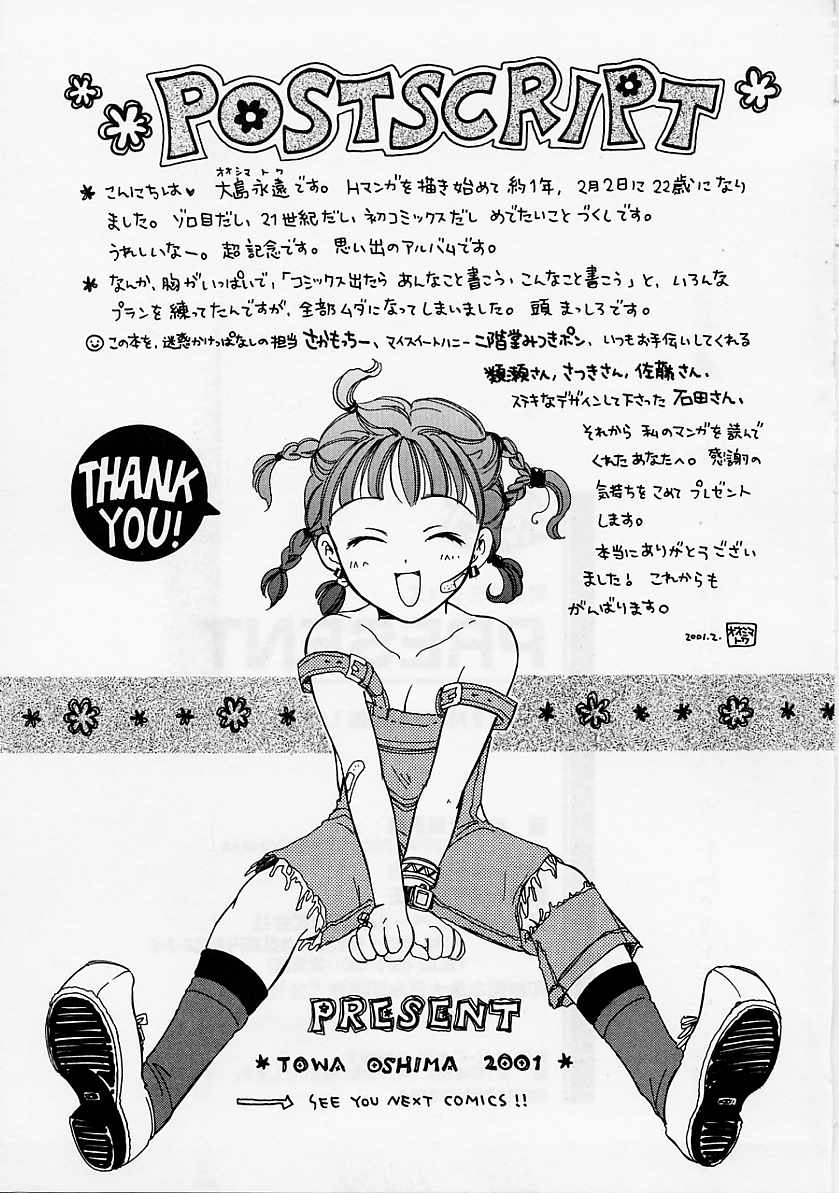 POSTSCRIPT
オオシマ トワ
* こんにちは♥ 大島永遠です。Hマンガを描き始めて約1年，2月2日に22歳になり
ました。ゾロ目だし，21世紀だし，初コミックスだし めでたいことづくしです。
うれしいなー。超記念です。思い出のアルバムです。
* なんか、胸がいっぱいで、「コミックス出たら あんなこと書こう、こんなこと書こう」と、いろんな
プランを練ってたんですが、全部ムダになってしまいました。頭 まっしろです。
☺ この本を、迷惑かけっぱなしの担当 さかもっちー、マイスイートハニー 二階堂みつきポン、いつもお手伝いしてくれる
類瀬さん，さつきさん，佐藤さん、
ステキなデザインして下さった 石田さん、
それから 私のマンガを読んで
くれたあなたへ。感謝の
気持ちをこめて プレゼント
します。
本当にありがとうござい
ました！ これからも
がんばります。
2001.2. オオシマ
トワ
THANK
YOU!
PRESENT
* TOWA OSHIMA 2001 *
→ SEE YOU NEXT COMICS!!